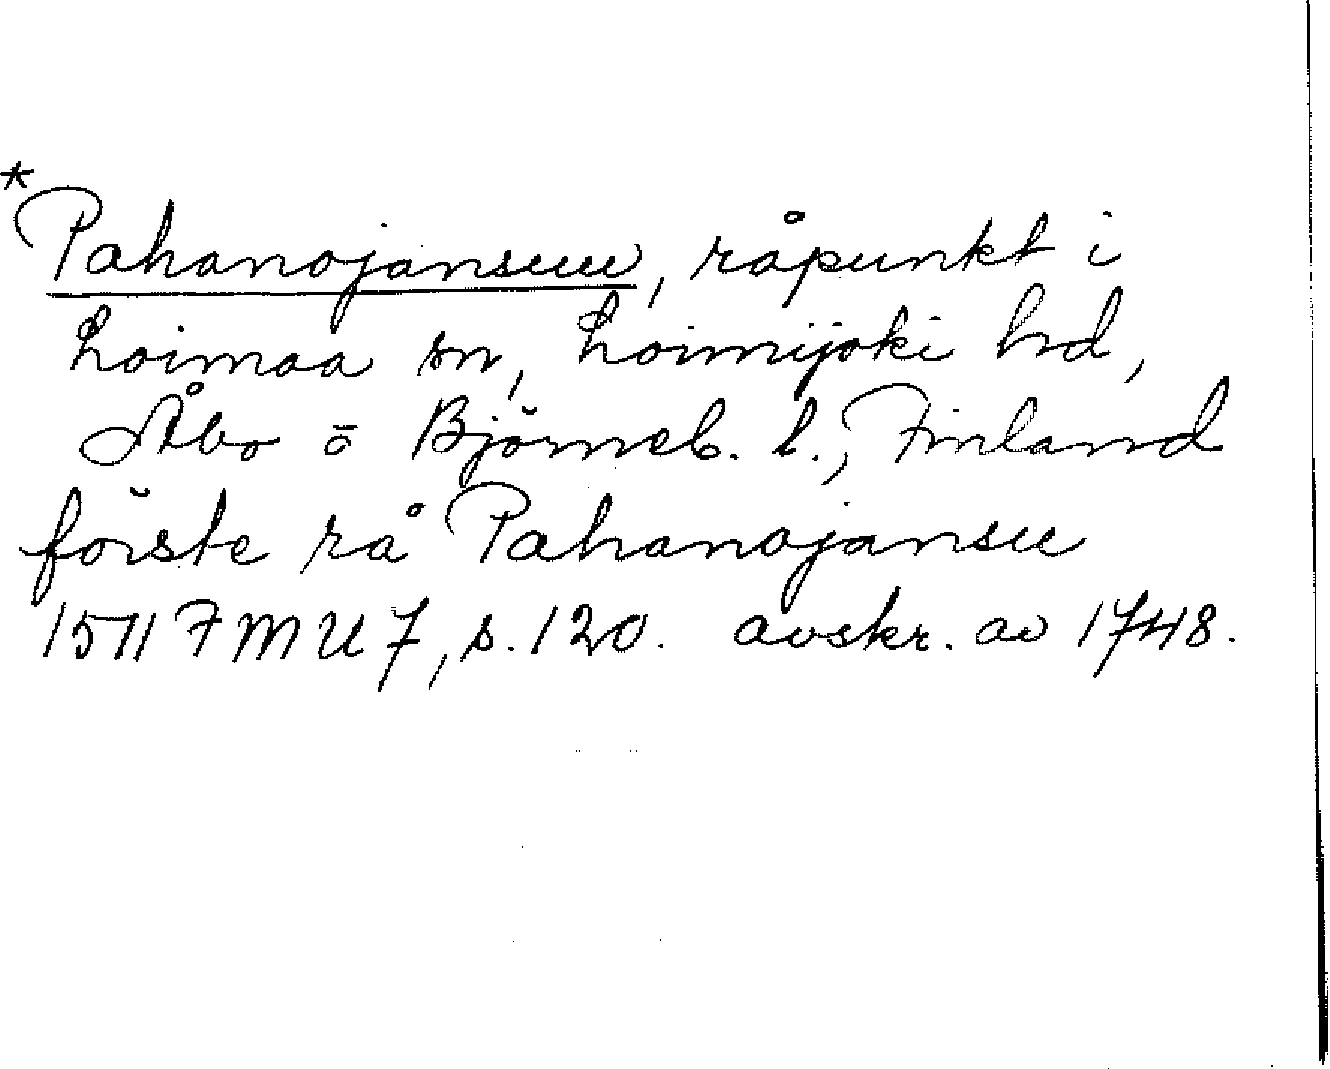 *Pahanojansuu, råpunkt i
Loimaa sn, Loimijoki hd,
Åbo o Björneb. l., Finland
förste rå Pahanojansu
1511 FMU 7, s. 120. avskr. av 1748.